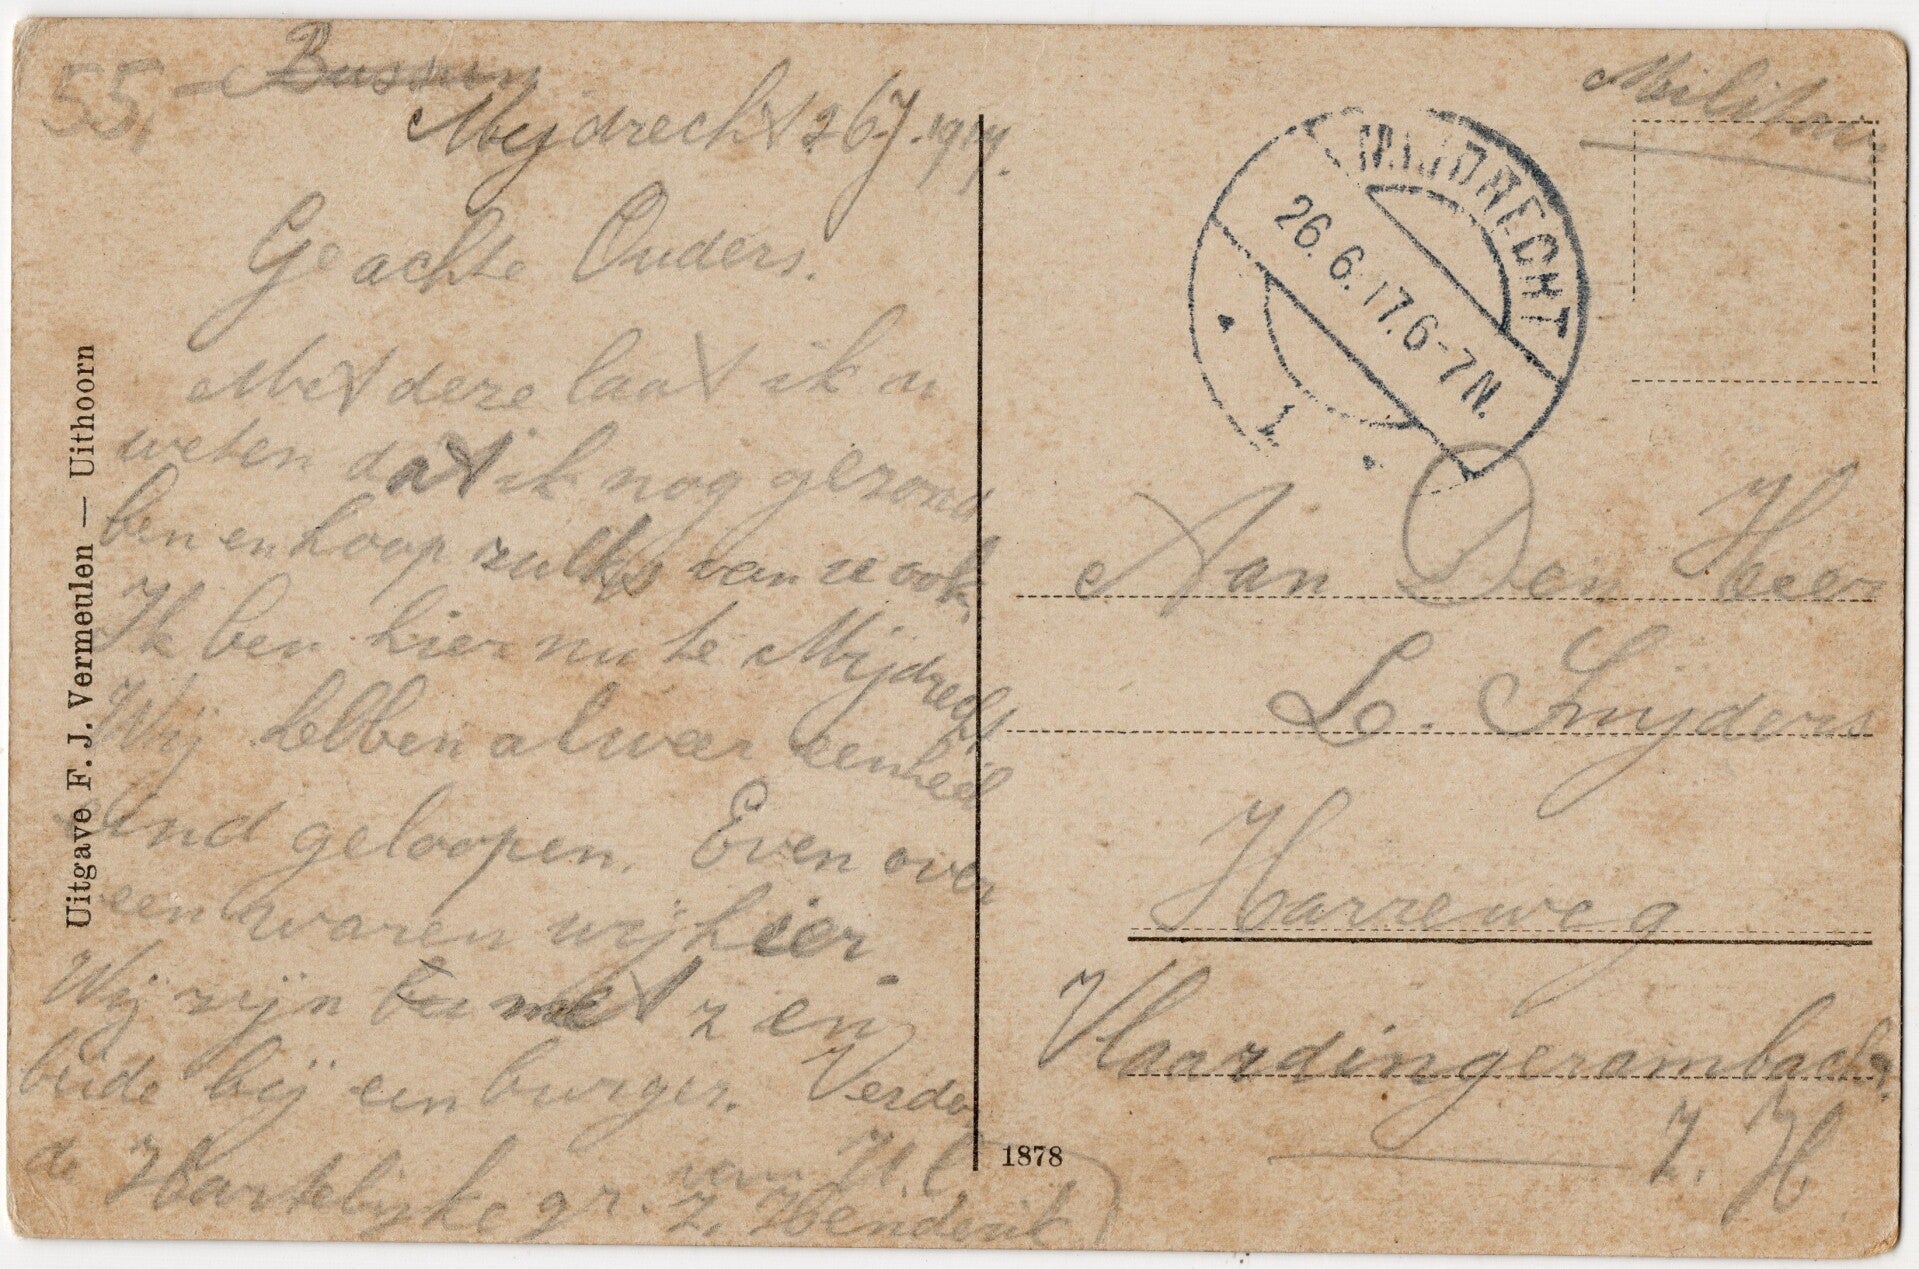 55.
Bussum
Mijdrecht 26-7-1917.
Geachte Ouders.
Met deze laat ik u
weten dat ik nog gezond
ben en hoop zulks van u ook.
Ik ben hier nu te Mijdrecht
Wij hebben alweer een heel
eind geloopen. Even over
een waren wij hier.
Wij zijn met z'en
beide bij een burger. Verder
de Hartelijke gr. van U.L.
z. Henderik
Uitgave F. J. Vermeulen — Uithoorn
1878
Militair
MIJDRECHT
26.6.17.6-7N.
1
Aan Den Heer
L. Snijders
Harreweg
Vlaardingerambacht
Z.H.